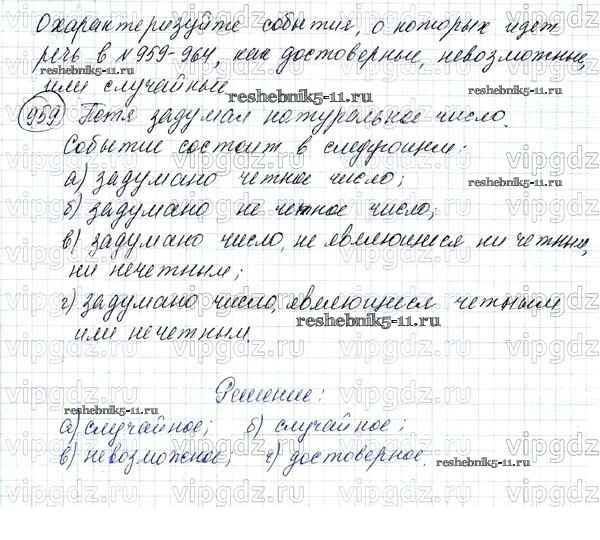 Охарактеризуйте события, о которых идет
речь в №959-964, как достоверные, невозможные,
или случайные
reshebnik5-11.ru
959 Петя задумал натуральное число.
Событие состоит в следующем:
а) задумано четное число;
reshebnik5-11.ru
б) задумано не четное число;
в) задумано число, не являющиеся ни четным,
ни нечетным;
reshebnik5-11.ru
г) задумано число, являющиеся четным
reshebnik5-11.ru
или нечетным.
Решение:
reshebnik5-11.ru
а) случайное; б) случайное;
в) невозможное; г) достоверное.
reshebnik5-11.ru
vipgdz.ru